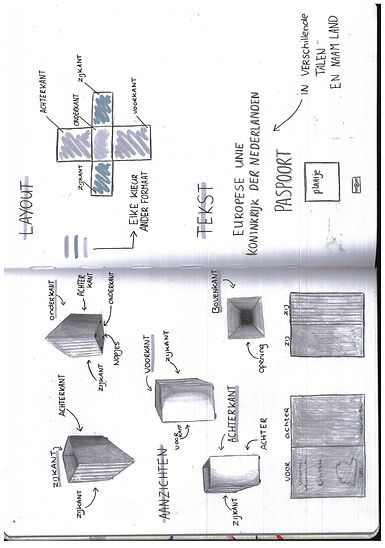 AANZICHTEN
zijkant
ACHTERKANT
zijkant
onderkant
ACHTER
KANT
ONDERKANT
Nopjes
zijkant
VOORKANT
zijkant
VOOR
ACHTERKANT
ACHTER
zijkant
BOVENKANT
opening
VOOR
achter
zij
zij
LAYOUT
ACHTERKANT
ONDERKANT
zijkant
VOORKANT
zijkant
ELKE KLEUR
ANDER FORMAAT
TEKST
EUROPESE UNIE
KONINKRIJK DER NEDERLANDEN
PASPOORT
IN VERSCHILLENDE
TALEN
EN NAAM LAND
plaatje